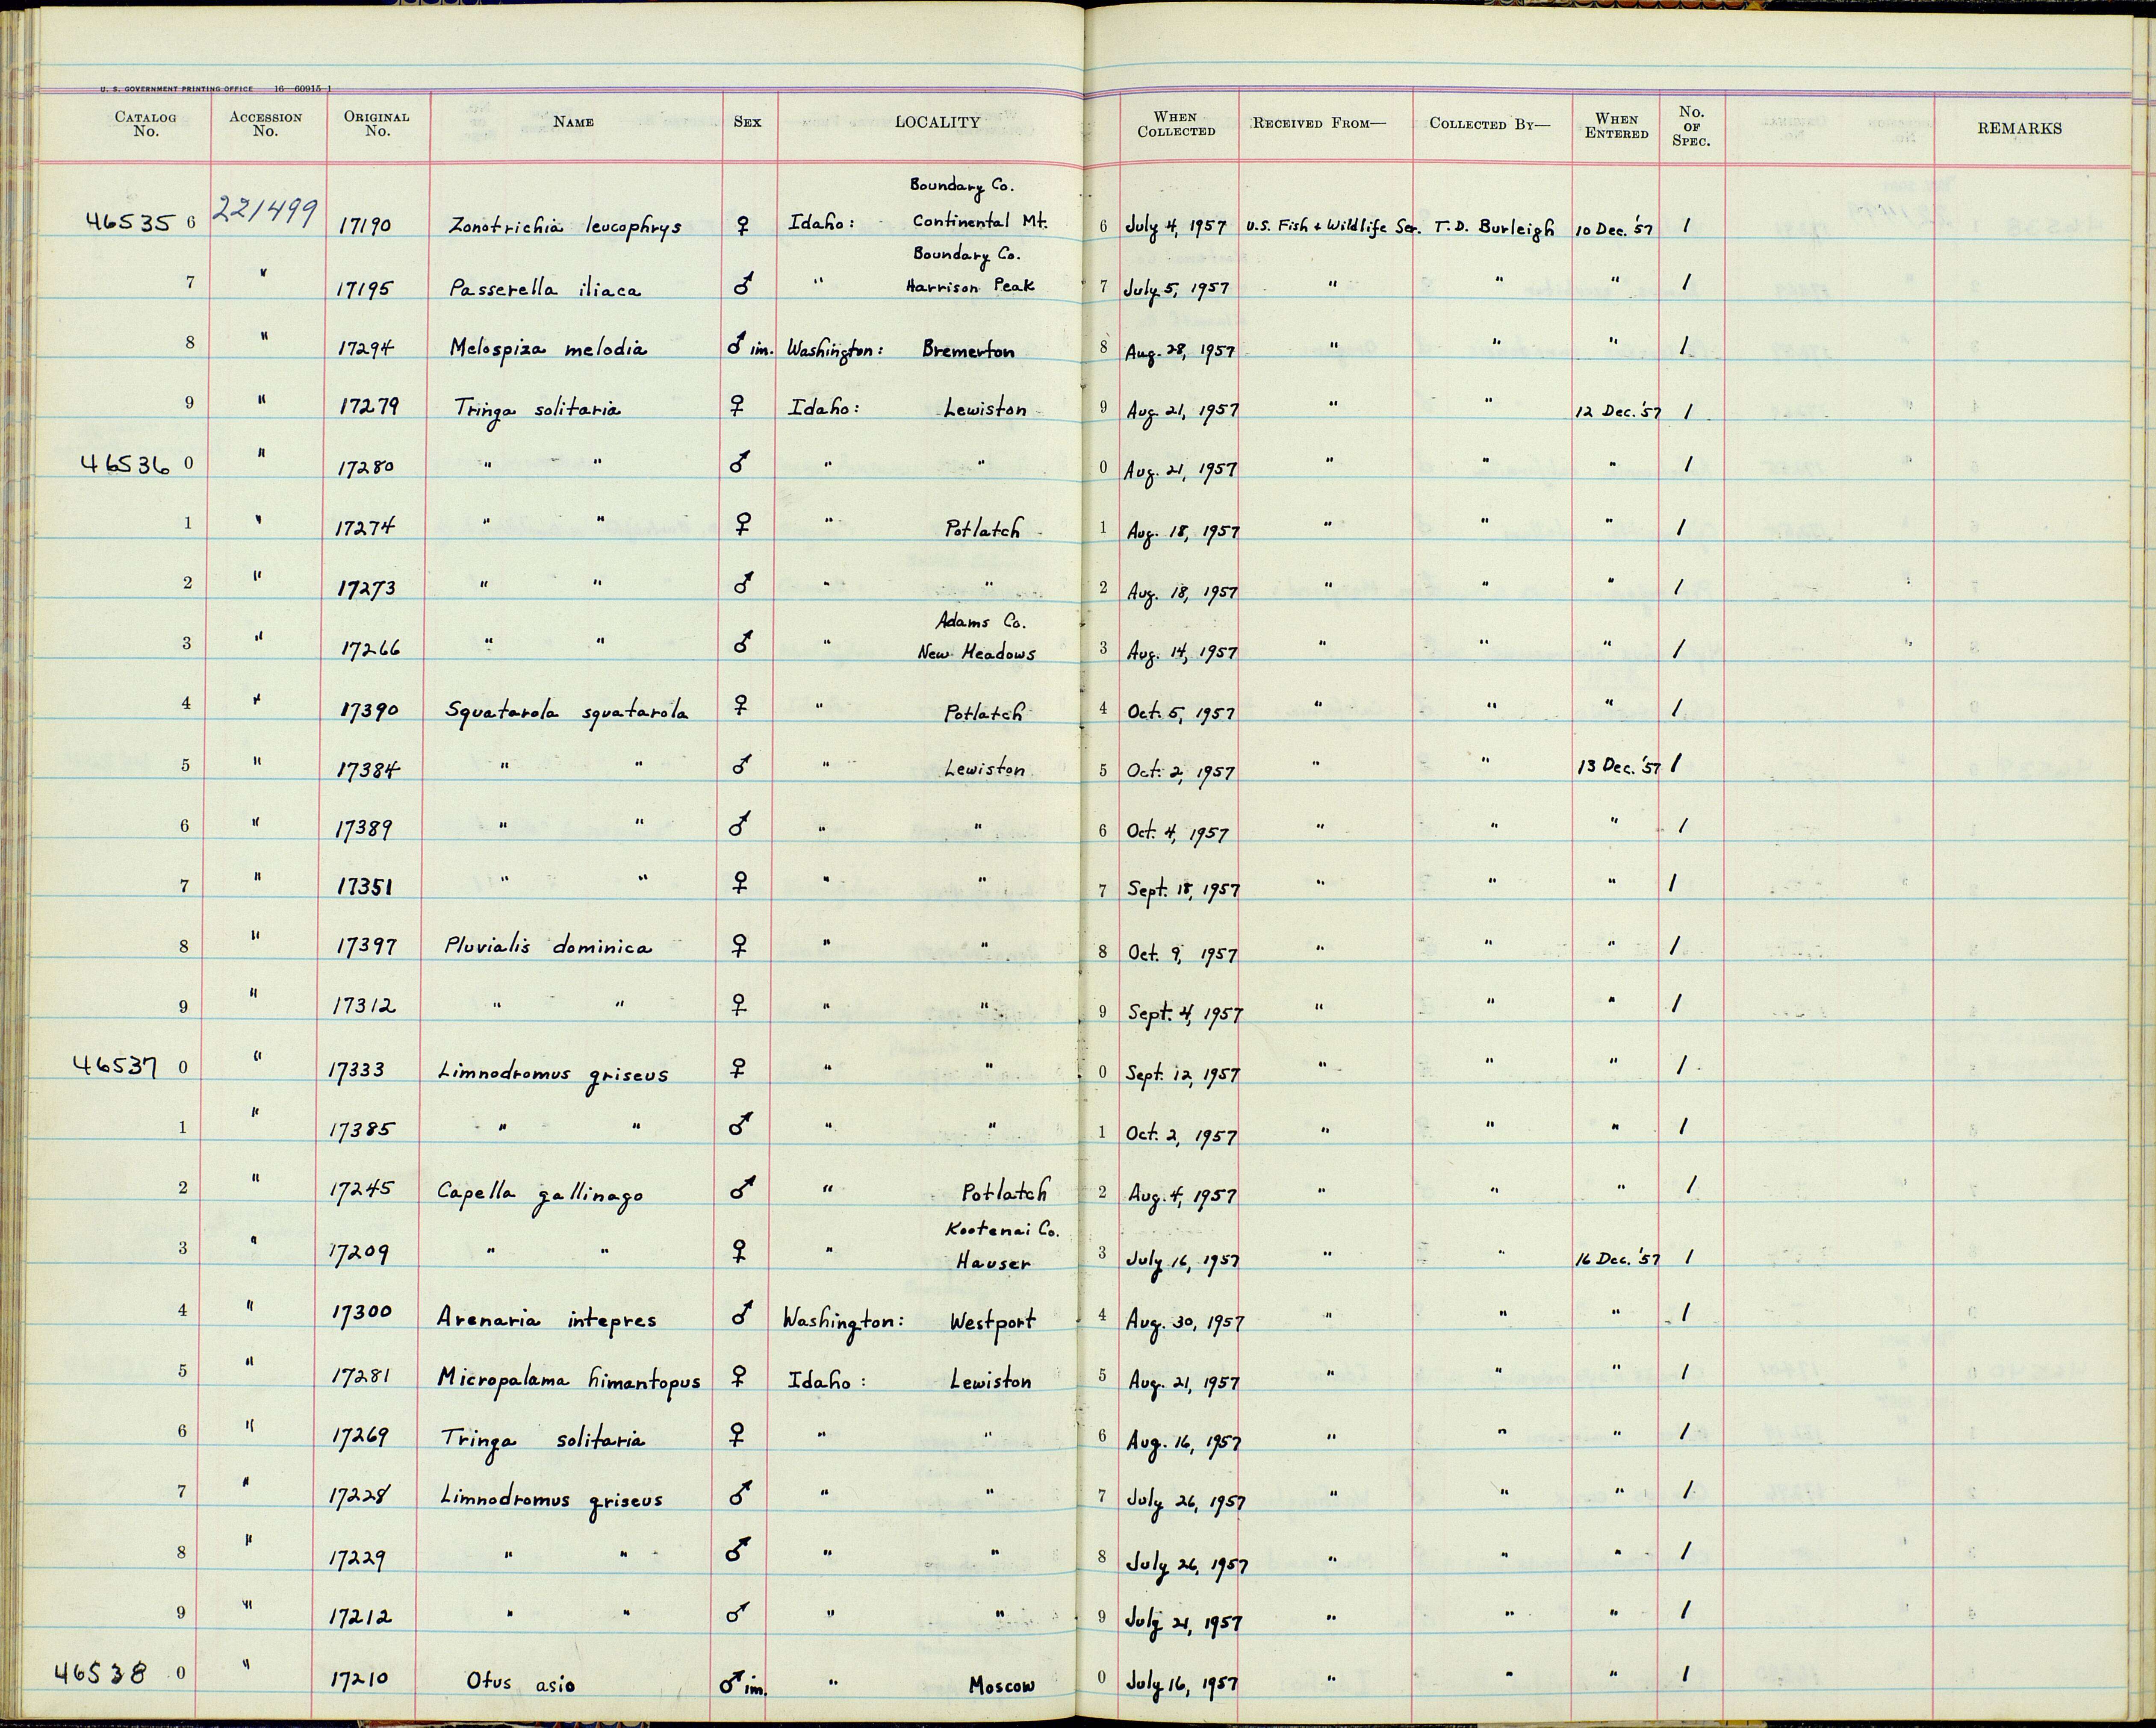 U. S. GOVERNMENT PRINTING OFFICE 16—60915-1
CATALOG No. ACCESSION No. ORIGINAL No. NAME SEX LOCALITY WHEN COLLECTED RECEIVED FROM— COLLECTED BY— WHEN ENTERED No. OF SPEC. REMARKS
Boundary Co.
46535 6 221499 17190 Zonotrichia leucophrys ♀ Idaho: Continental Mt. 6 July 4, 1957 U.S. Fish & Wildlife Ser. T. D. Burleigh 10 Dec. '57 1
Boundary Co.
7 " 17195 Passerella iliaca ♂ " Harrison Peak 7 July 5, 1957 " " " 1
8 " 17294 Melospiza melodia ♂ im. Washington: Bremerton 8 Aug. 28, 1957 " " " 1
9 " 17279 Tringa solitaria ♀ Idaho: Lewiston 9 Aug. 21, 1957 " " 12 Dec. '57 1
46536 0 " 17280 " " ♂ " " 0 Aug. 21, 1957 " " " 1
1 " 17274 " " ♀ " Potlatch 1 Aug. 18, 1957 " " " 1
2 " 17273 " " ♂ " " 2 Aug. 18, 1957 " " " 1
Adams Co.
3 " 17266 " " ♂ " New Meadows 3 Aug. 14, 1957 " " " 1
4 " 17390 Squatarola squatarola ♀ " Potlatch 4 Oct. 5, 1957 " " " 1
5 " 17384 " " ♂ " Lewiston 5 Oct. 2, 1957 " " 13 Dec. '57 1
6 " 17389 " " ♂ " " 6 Oct. 4, 1957 " " " 1
7 " 17351 " " ♀ " " 7 Sept. 18, 1957 " " " 1
8 " 17397 Pluvialis dominica ♀ " " 8 Oct. 9, 1957 " " " 1
9 " 17312 " " ♀ " " 9 Sept. 4, 1957 " " " 1
46537 0 " 17333 Limnodromus griseus ♀ " " 0 Sept. 12, 1957 " " " 1
1 " 17385 " " ♂ " " 1 Oct. 2, 1957 " " " 1
2 " 17245 Capella gallinago ♂ " Potlatch 2 Aug. 4, 1957 " " " 1
Kootenai Co.
3 " 17209 " " ♀ " Hauser 3 July 16, 1957 " " 16 Dec. '57 1
4 " 17300 Arenaria intepres ♂ Washington: Westport 4 Aug. 30, 1957 " " " 1
5 " 17281 Micropalama himantopus ♀ Idaho: Lewiston 5 Aug. 21, 1957 " " " 1
6 " 17269 Tringa solitaria ♀ " " 6 Aug. 16, 1957 " " " 1
7 " 17228 Limnodromus griseus ♂ " " 7 July 26, 1957 " " " 1
8 " 17229 " " ♂ " " 8 July 26, 1957 " " " 1
9 " 17212 " " ♂ " " 9 July 21, 1957 " " " 1
46538 0 " 17210 Otus asio ♂ im. " Moscow 0 July 16, 1957 " " " 1